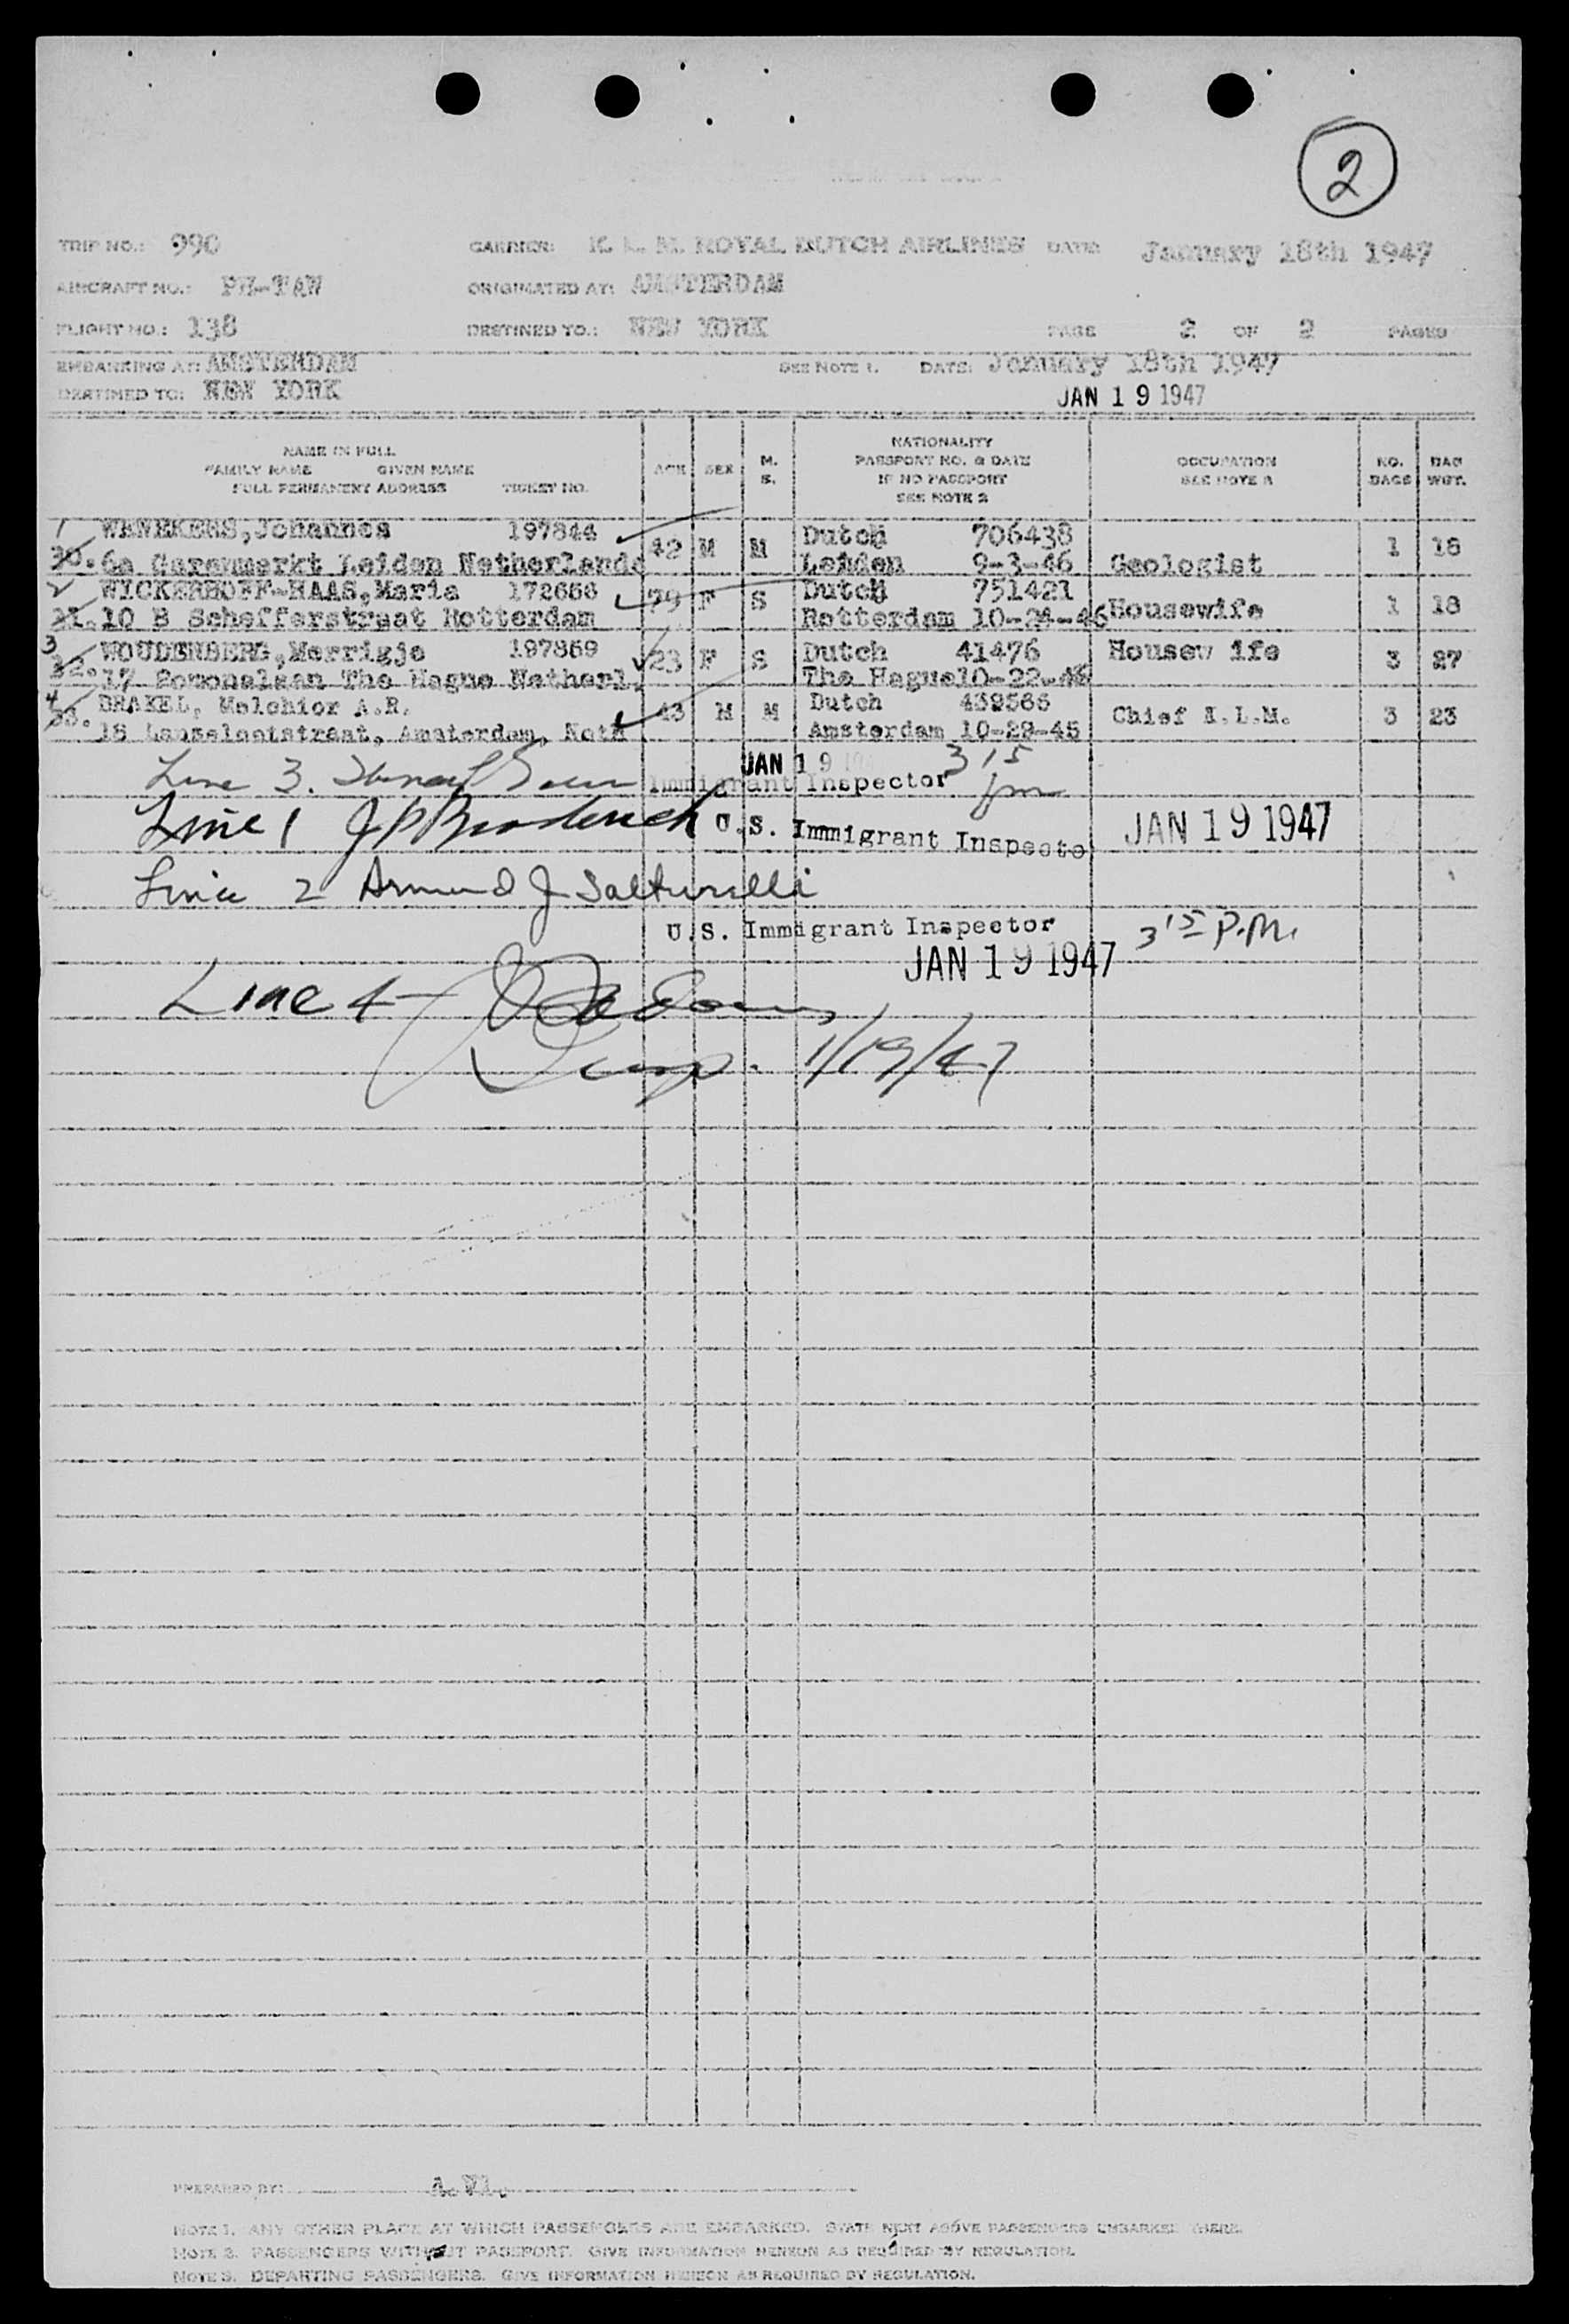 2
TRIP NO.: 990 CARRIER: K. L. M. ROYAL DUTCH AIRLINES DATE: January 18th 1947
AIRCRAFT NO.: PH-TAW ORIGINATED AT: AMSTERDAM
FLIGHT NO.: 138 DESTINED TO.: NEW YORK PAGE 2 OF 2 PAGES
EMBARKING AT: AMSTERDAM SEE NOTE 1. DATE: January 18th 1947
DESTINED TO: NEW YORK JAN 19 1947
NAME IN FULL
FAMILY NAME GIVEN NAME
FULL PERMANENT ADDRESS TICKET NO.
AGE SEX M. S.
NATIONALITY
PASSPORT NO. & DATE
IF NO PASSPORT
SEE NOTE 2
OCCUPATION
SEE NOTE 3
NO. BAGS
BAG WGT.
1 WENEKERS, Johannes 197844 42 M M Dutch 706438 1 18
30. 6a Garenmarkt Leiden Netherlands Leiden 9-3-46 Geologist
2 WICKERHOFF-HAAS, Maria 79 F S Dutch 751421 1 18
31. 10 B Schefferstraat Rotterdam Rotterdam 10-24-46 Housewife
3 WOUDENBERG, Merrigje 197869 23 F S Dutch 41476 Housewife 3 27
32. 17 Pomonalaan The Hague Netherl. The Hague 10-22-46
4 BRAKEL, Melchior A.R. 43 M M Dutch Chief K.L.M. 3 23
33. Amsterdam, Neth Amsterdam 10-29-45
JAN 19
Line 3. Immigrant Inspector 3 15 pm
Line 1 J P Broderick U.S. Immigrant Inspecto JAN 19 1947
Line 2 Armund J Salturelli
U.S. Immigrant Inspector 3 15 P.M.
JAN 19 1947
Line 4
Insp. 1/19/47
PREPARED BY:
NOTE 1. ANY OTHER PLACE AT WHICH PASSENGERS ARE EMBARKED. STATE NEXT ABOVE PASSENGERS EMBARKED THERE.
NOTE 2. PASSENGERS WITHOUT PASSPORT. GIVE INFORMATION HEREON AS REQUIRED BY REGULATION.
NOTE 3. DEPARTING PASSENGERS. GIVE INFORMATION HEREON AS REQUIRED BY REGULATION.